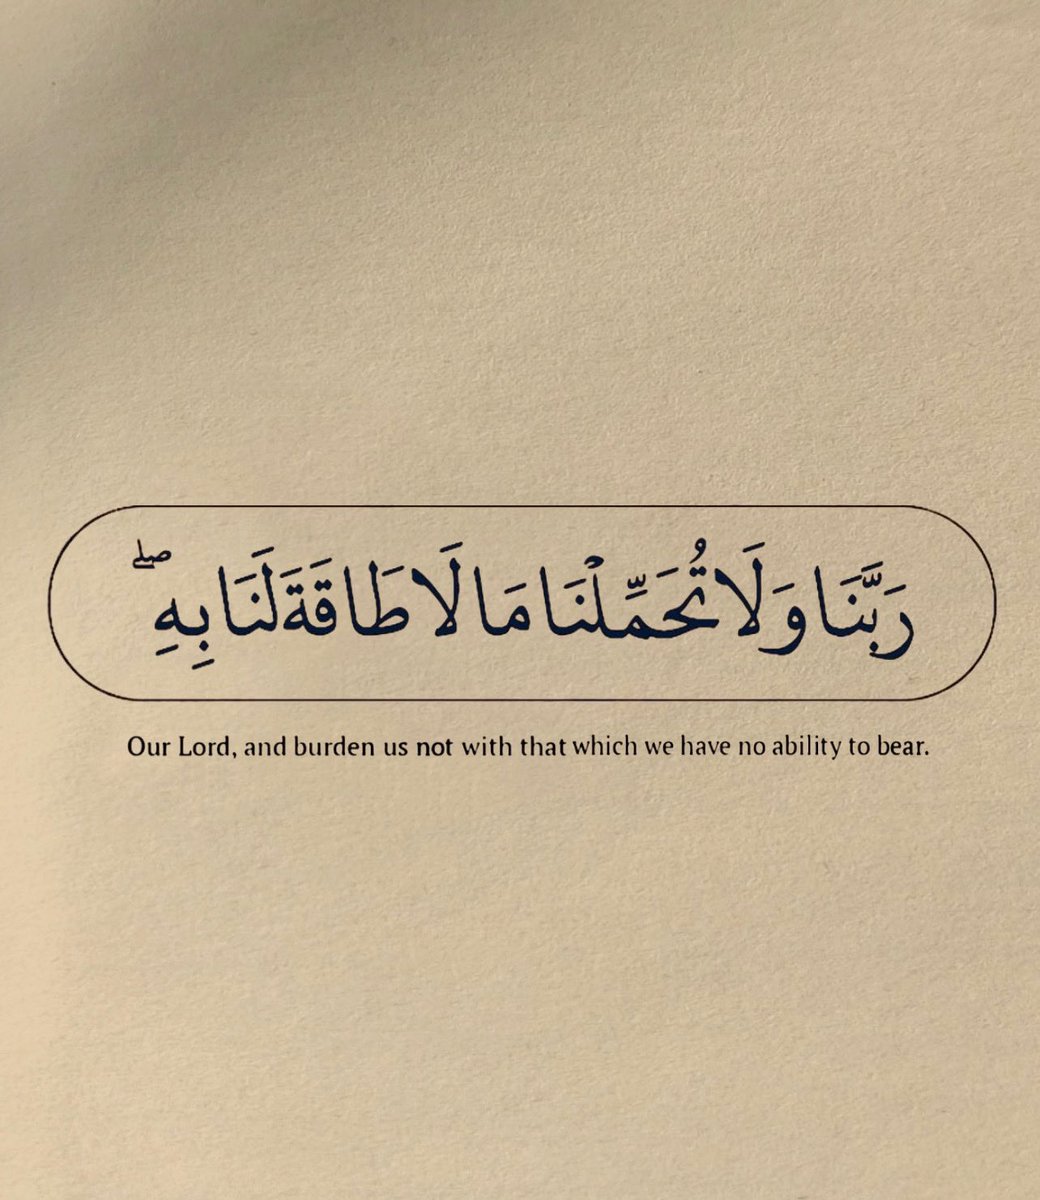 رَبَّنَا وَلَا تُحَمِّلْنَا مَا لَا طَاقَةَ لَنَا بِهِ ۖ
Our Lord, and burden us not with that which we have no ability to bear.